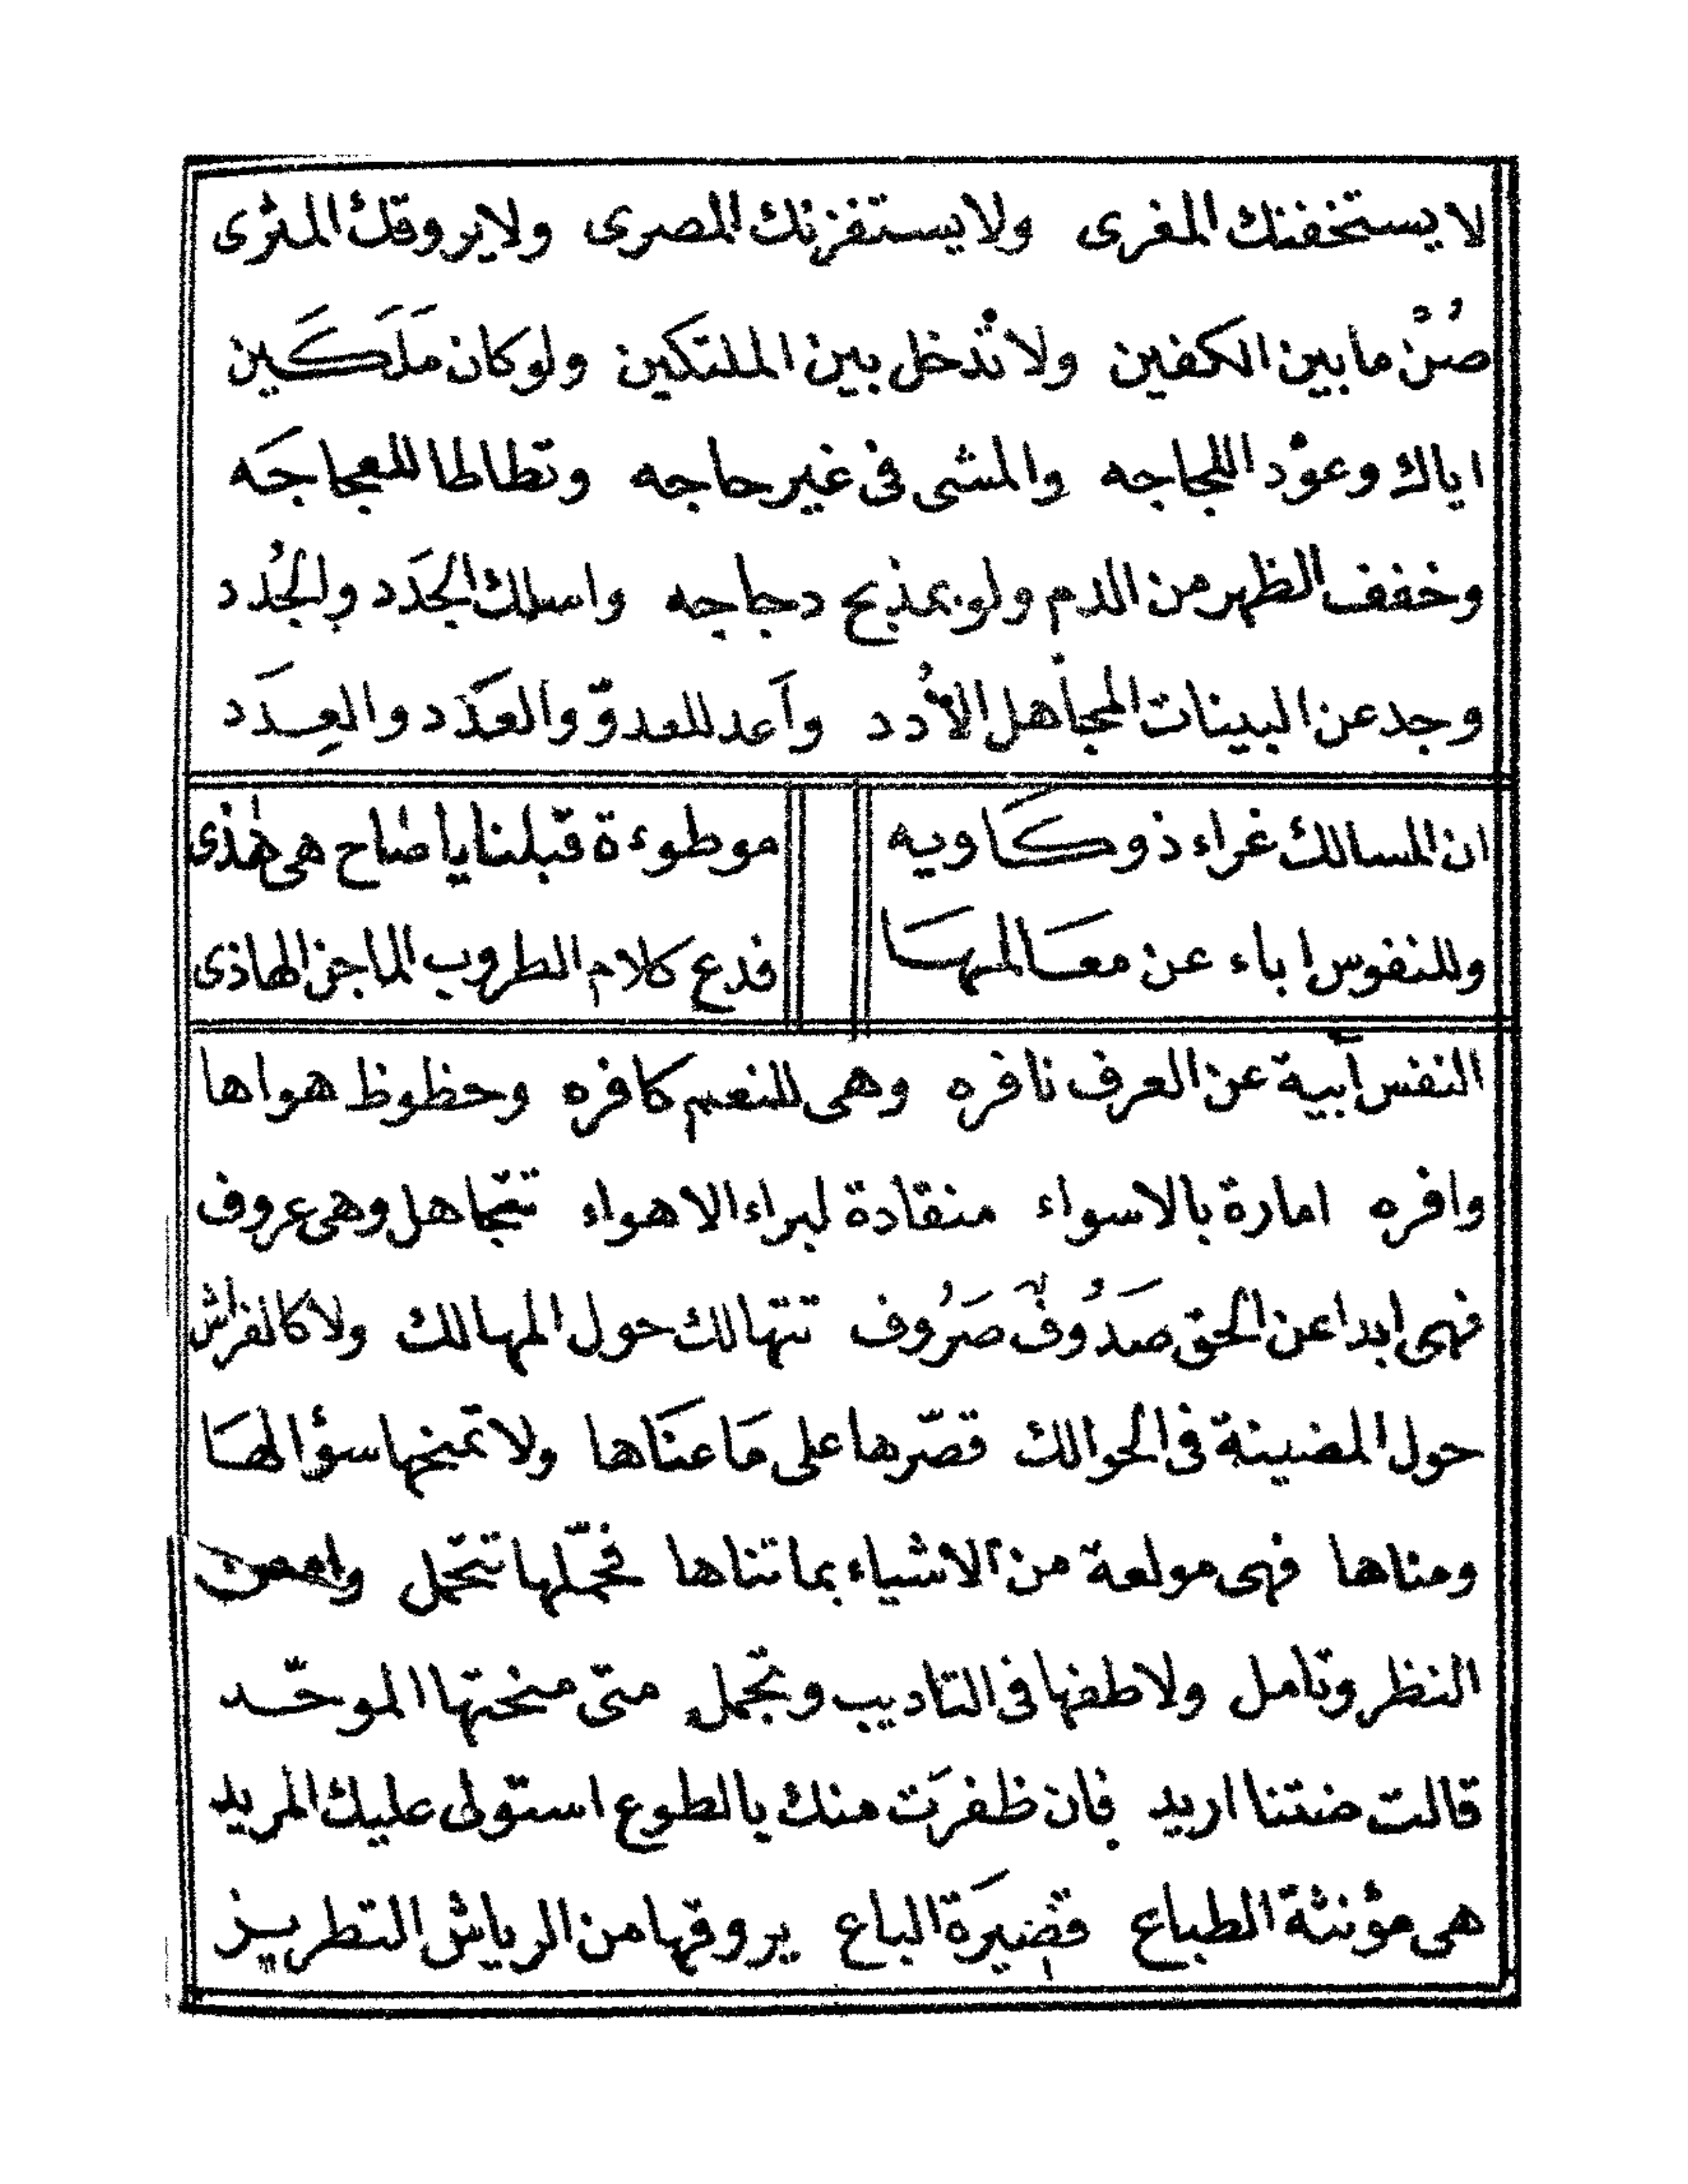 لا يستخفنك المغرى ولا يستفزنك المصرى ولا يروقك المثرى
صُنْ ما بين الكفين ولا تدخل بين الملتكين ولو كان مَلَكَين
اياك وعوْد اللجاجه والمشى فى غير حاجه وتطاطا للعجاجَه
وخفف الظهر من الدم ولو بمذبح دجاجه واسلك الجَدَد والجُدد
وجد عن البينات المجاهل الأُدد وآعد للعدوّ والعَدَد والعِدَد
ان المسالك غراء ذوكَاويه موطوءة قبلنا يا صاح هى هٰذى
وللنفوس اباء عن معَالمهَا فدع كلام الطروب الماجن الهاذى
النفس أبية عن العرف نافره وهى للنعم كافره وحظوظ هواها
وافره امارة بالاسواء منقادة لبراء الاهواء تتجاهل وهى عروف
فهى ابدا عن الحق صَدُوفٌ صَرُوف تتهالك حول المهالك ولا كالفراش
حول المضيئة فى الحوالك قصّرها على مَا عنَاها ولا تمنحها سؤالهَا
ومناها فهى مولعة من الاشياء بما تناها فحمّلها تتحمل وامعن
النظر وتامل ولاطفها فى التاديب وتجمل متى منحتها الموحّد
قالت ضتنا اريد فان ظفرَت منك بالطوع استولى عليك المريد
هى مؤنثة الطباع قصيَرة الباع يروقها من الرياش التطريز